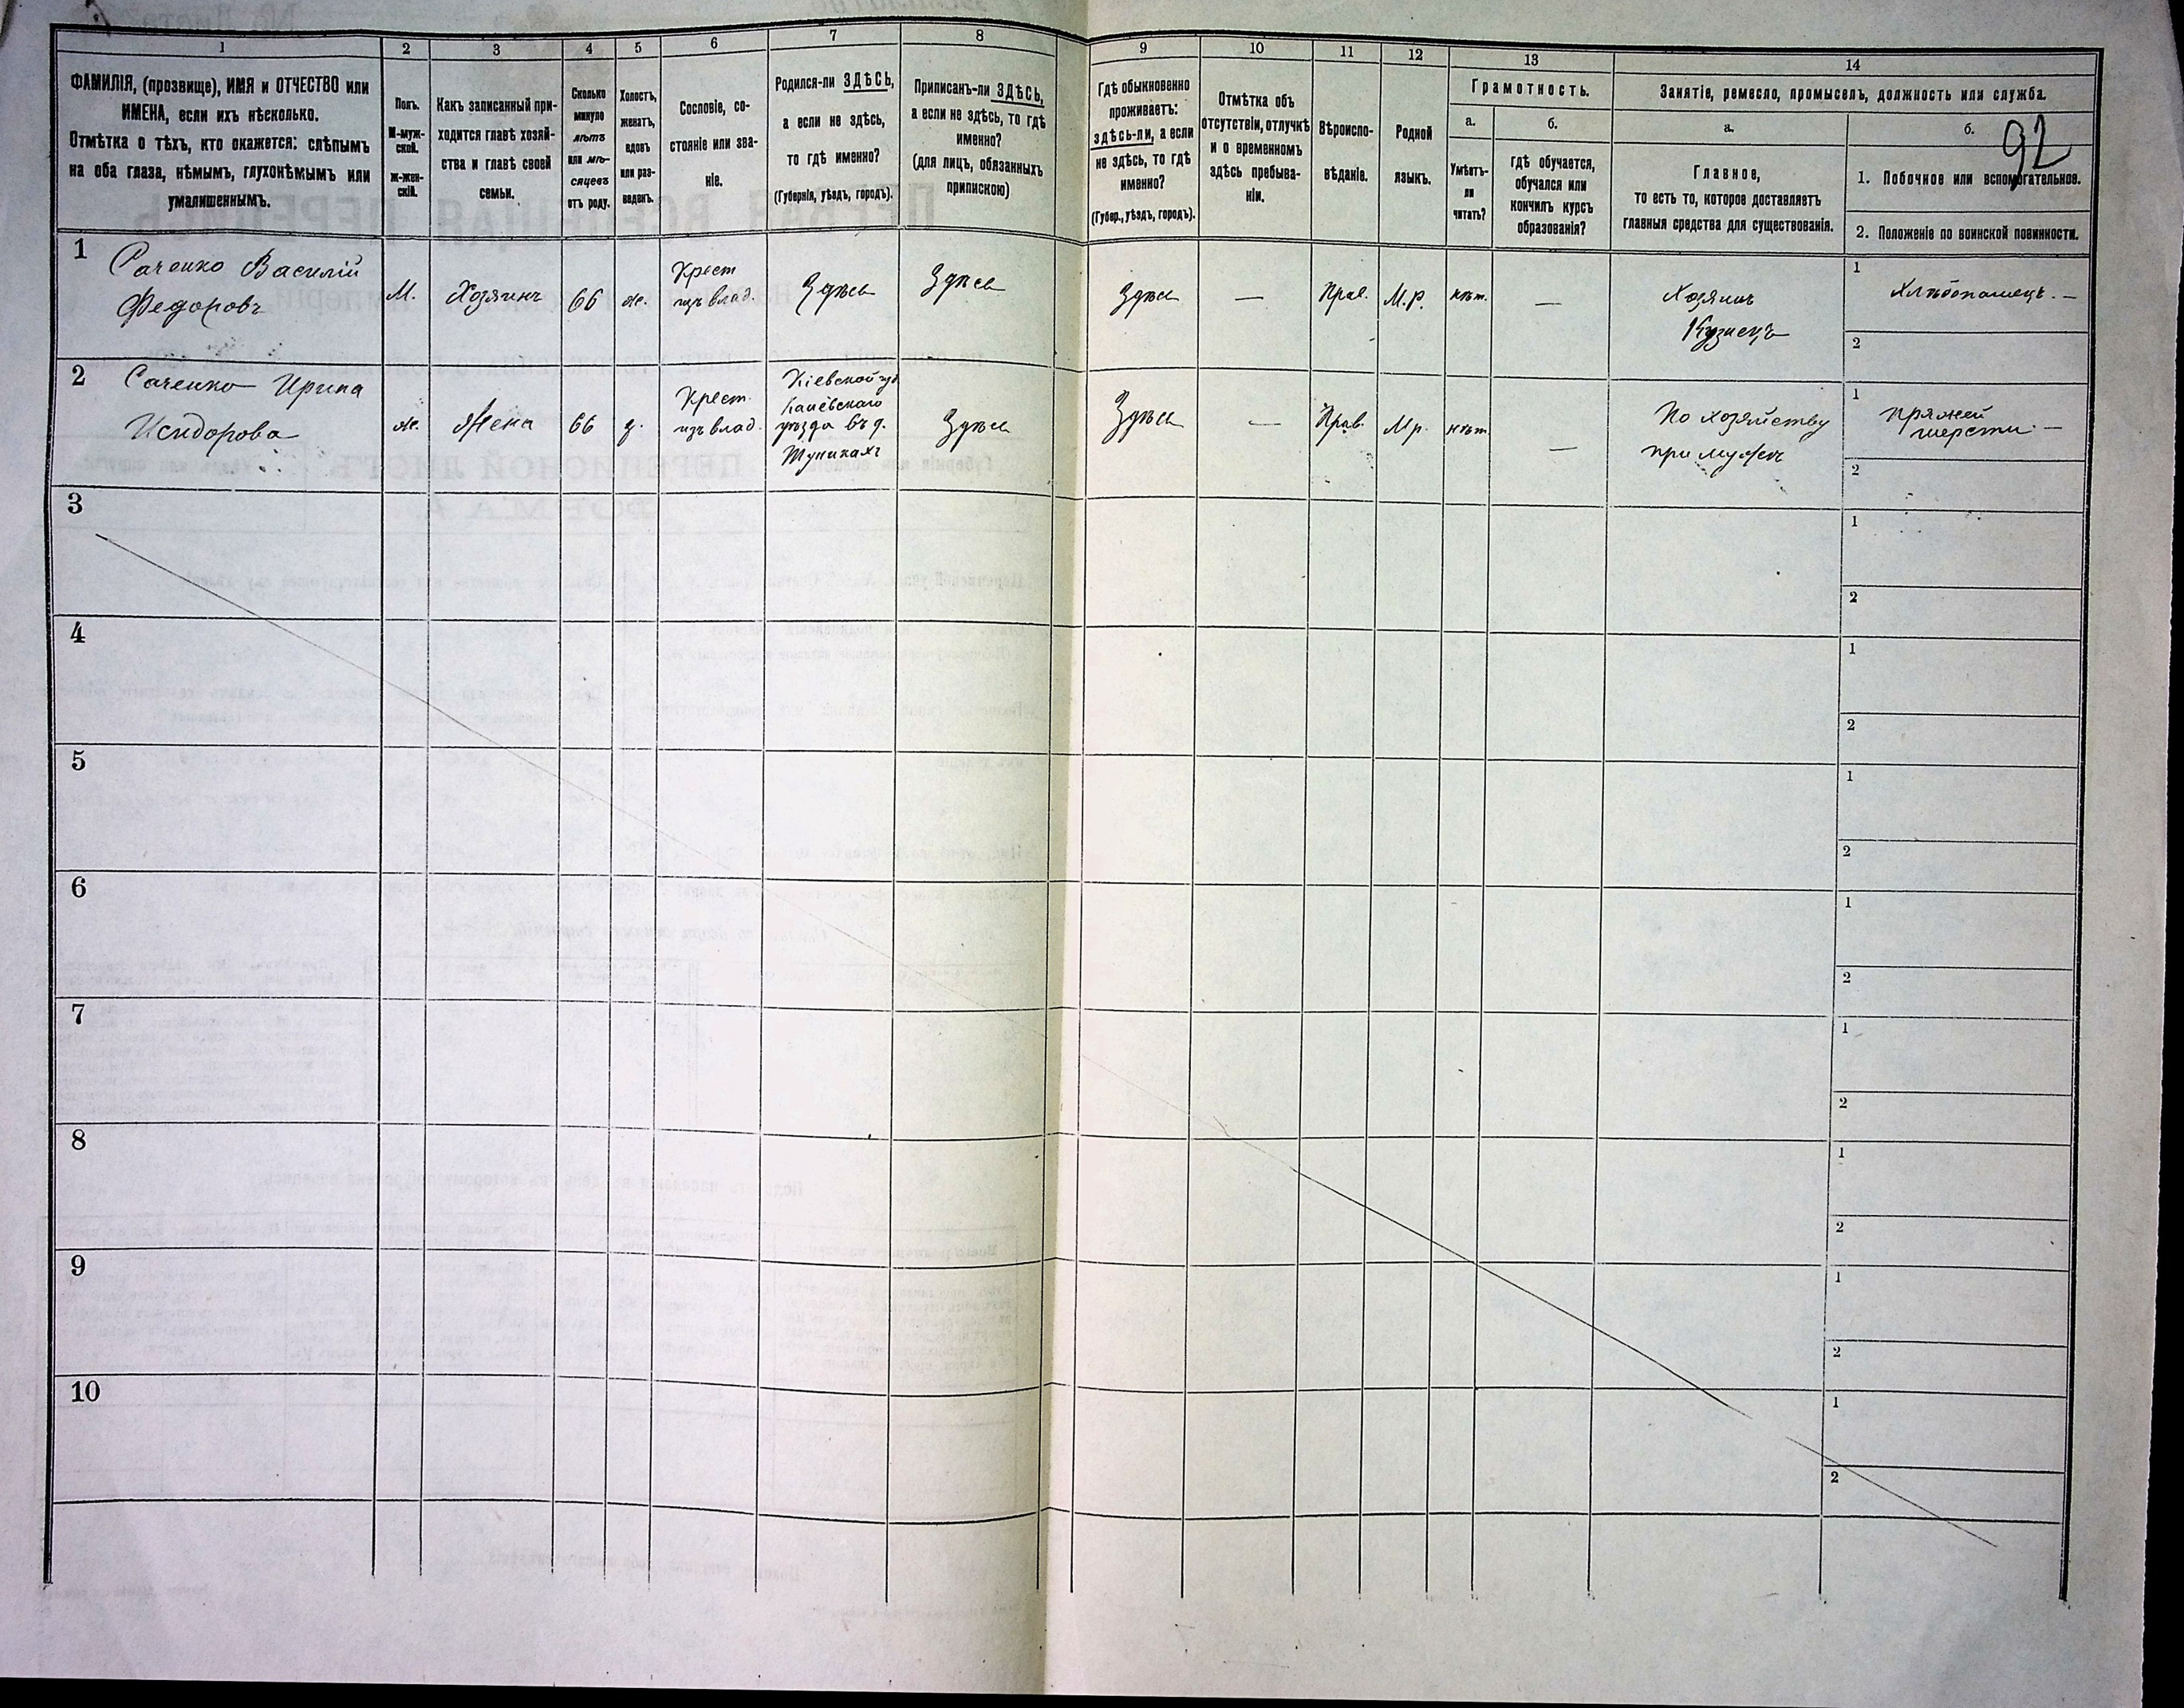 1 2 3 4 5 6 7 8 9 10 11 12 13 14
ФАМИЛІЯ, (прозвище), ИМЯ и ОТЧЕСТВО или
ИМЕНА, если ихъ нѣсколько.
Отмѣтка о тѣхъ, кто окажется: слѣпымъ
на оба глаза, нѣмымъ, глухонѣмымъ или
умалишеннымъ.
Полъ.
М-муж-
ской.
ж-жен-
скій.
Какъ записанный при-
ходится главѣ хозяй-
ства и главѣ своей
семьи.
Сколько
минуло
лѣтъ
или мѣ-
сяцевъ
отъ роду.
Холостъ,
женатъ,
вдовъ
или раз-
веденъ.
Сословіе, со-
стояніе или зва-
ніе.
Родился-ли ЗДѢСЬ,
а если не здѣсь,
то гдѣ именно?
(Губернія, уѣздъ, городъ).
Приписанъ-ли ЗДѢСЬ,
а если не здѣсь, то гдѣ
именно?
(для лицъ, обязанныхъ
припискою)
Гдѣ обыкновенно
проживаетъ:
здѣсь-ли, а если
не здѣсь, то гдѣ
именно?
(Губер., уѣздъ, городъ).
Отмѣтка объ
отсутствіи, отлучкѣ
и о временномъ
здѣсь пребыва-
ніи.
Вѣроиспо-
вѣданіе.
Родной
языкъ.
Грамотность.
а.
Умѣетъ-
ли
читать?
б.
гдѣ обучается,
обучался или
кончилъ курсъ
образованія?
Занятіе, ремесло, промыселъ, должность или служба.
а.
Главное,
то есть то, которое доставляетъ
главныя средства для существованія.
б.
92
1. Побочное или вспомогательное.
2. Положеніе по воинской повинности.
1
Саченко Василій
Федоровъ
М.
Хозяинъ
66
ж.
Крест
изъ влад.
Здѣсь
Здѣсь
Здѣсь
—
Прав.
М.р.
нѣт.
—
Хозяинъ
Кузнецъ
1
Хлѣбопашецъ. —
2
2
Саченко Ирина
Исидорова
ж.
Жена
66
з.
Крест.
изъ влад.
Кіевской губ
Каневскаго
уѣзда въ д.
Здѣсь
Здѣсь
—
Прав.
М р.
нѣт
—
По хозяйству
при мужѣ
1
пряжей
шерсти. —
2
3
1
2
4
1
2
5
1
2
6
1
2
7
1
2
8
1
2
9
1
2
10
1
2